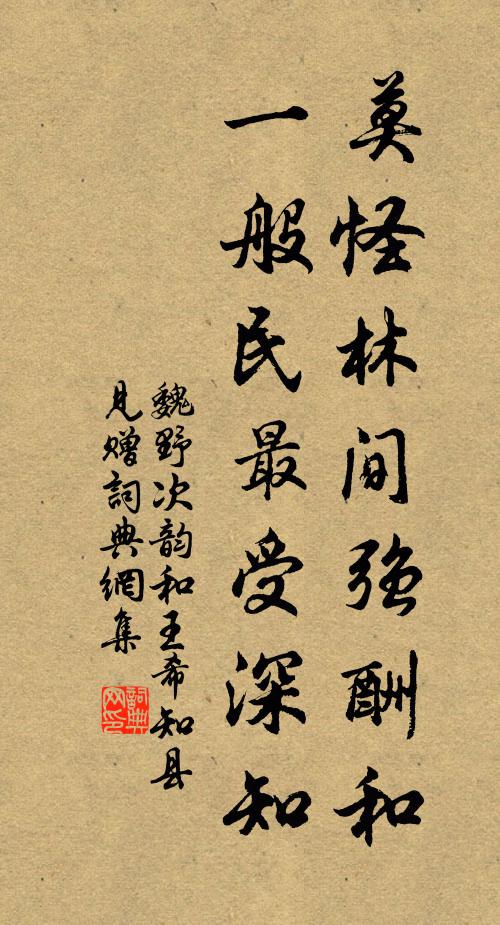 莫怪林间强酬和
一般民最受深知
魏野次韵和王希知县
见赠詞典網集
詞典
网印